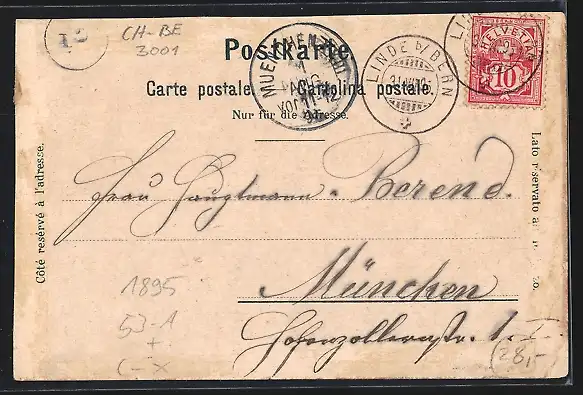 12
CH-BE
3001
Postkarte
Carte postale. Cartolina postale.
Nur für die Adresse.
MUENCHEN
1
AUG
VOR 11-12
95
LINDE b/BERN
HELVETIA
10
Côté reservé à l'adresse.
Lato riservato
Frau Hauptmann Berend.
München
Hohenzollernstr. 1. I
1895
53-A
+
C-X
(28,-